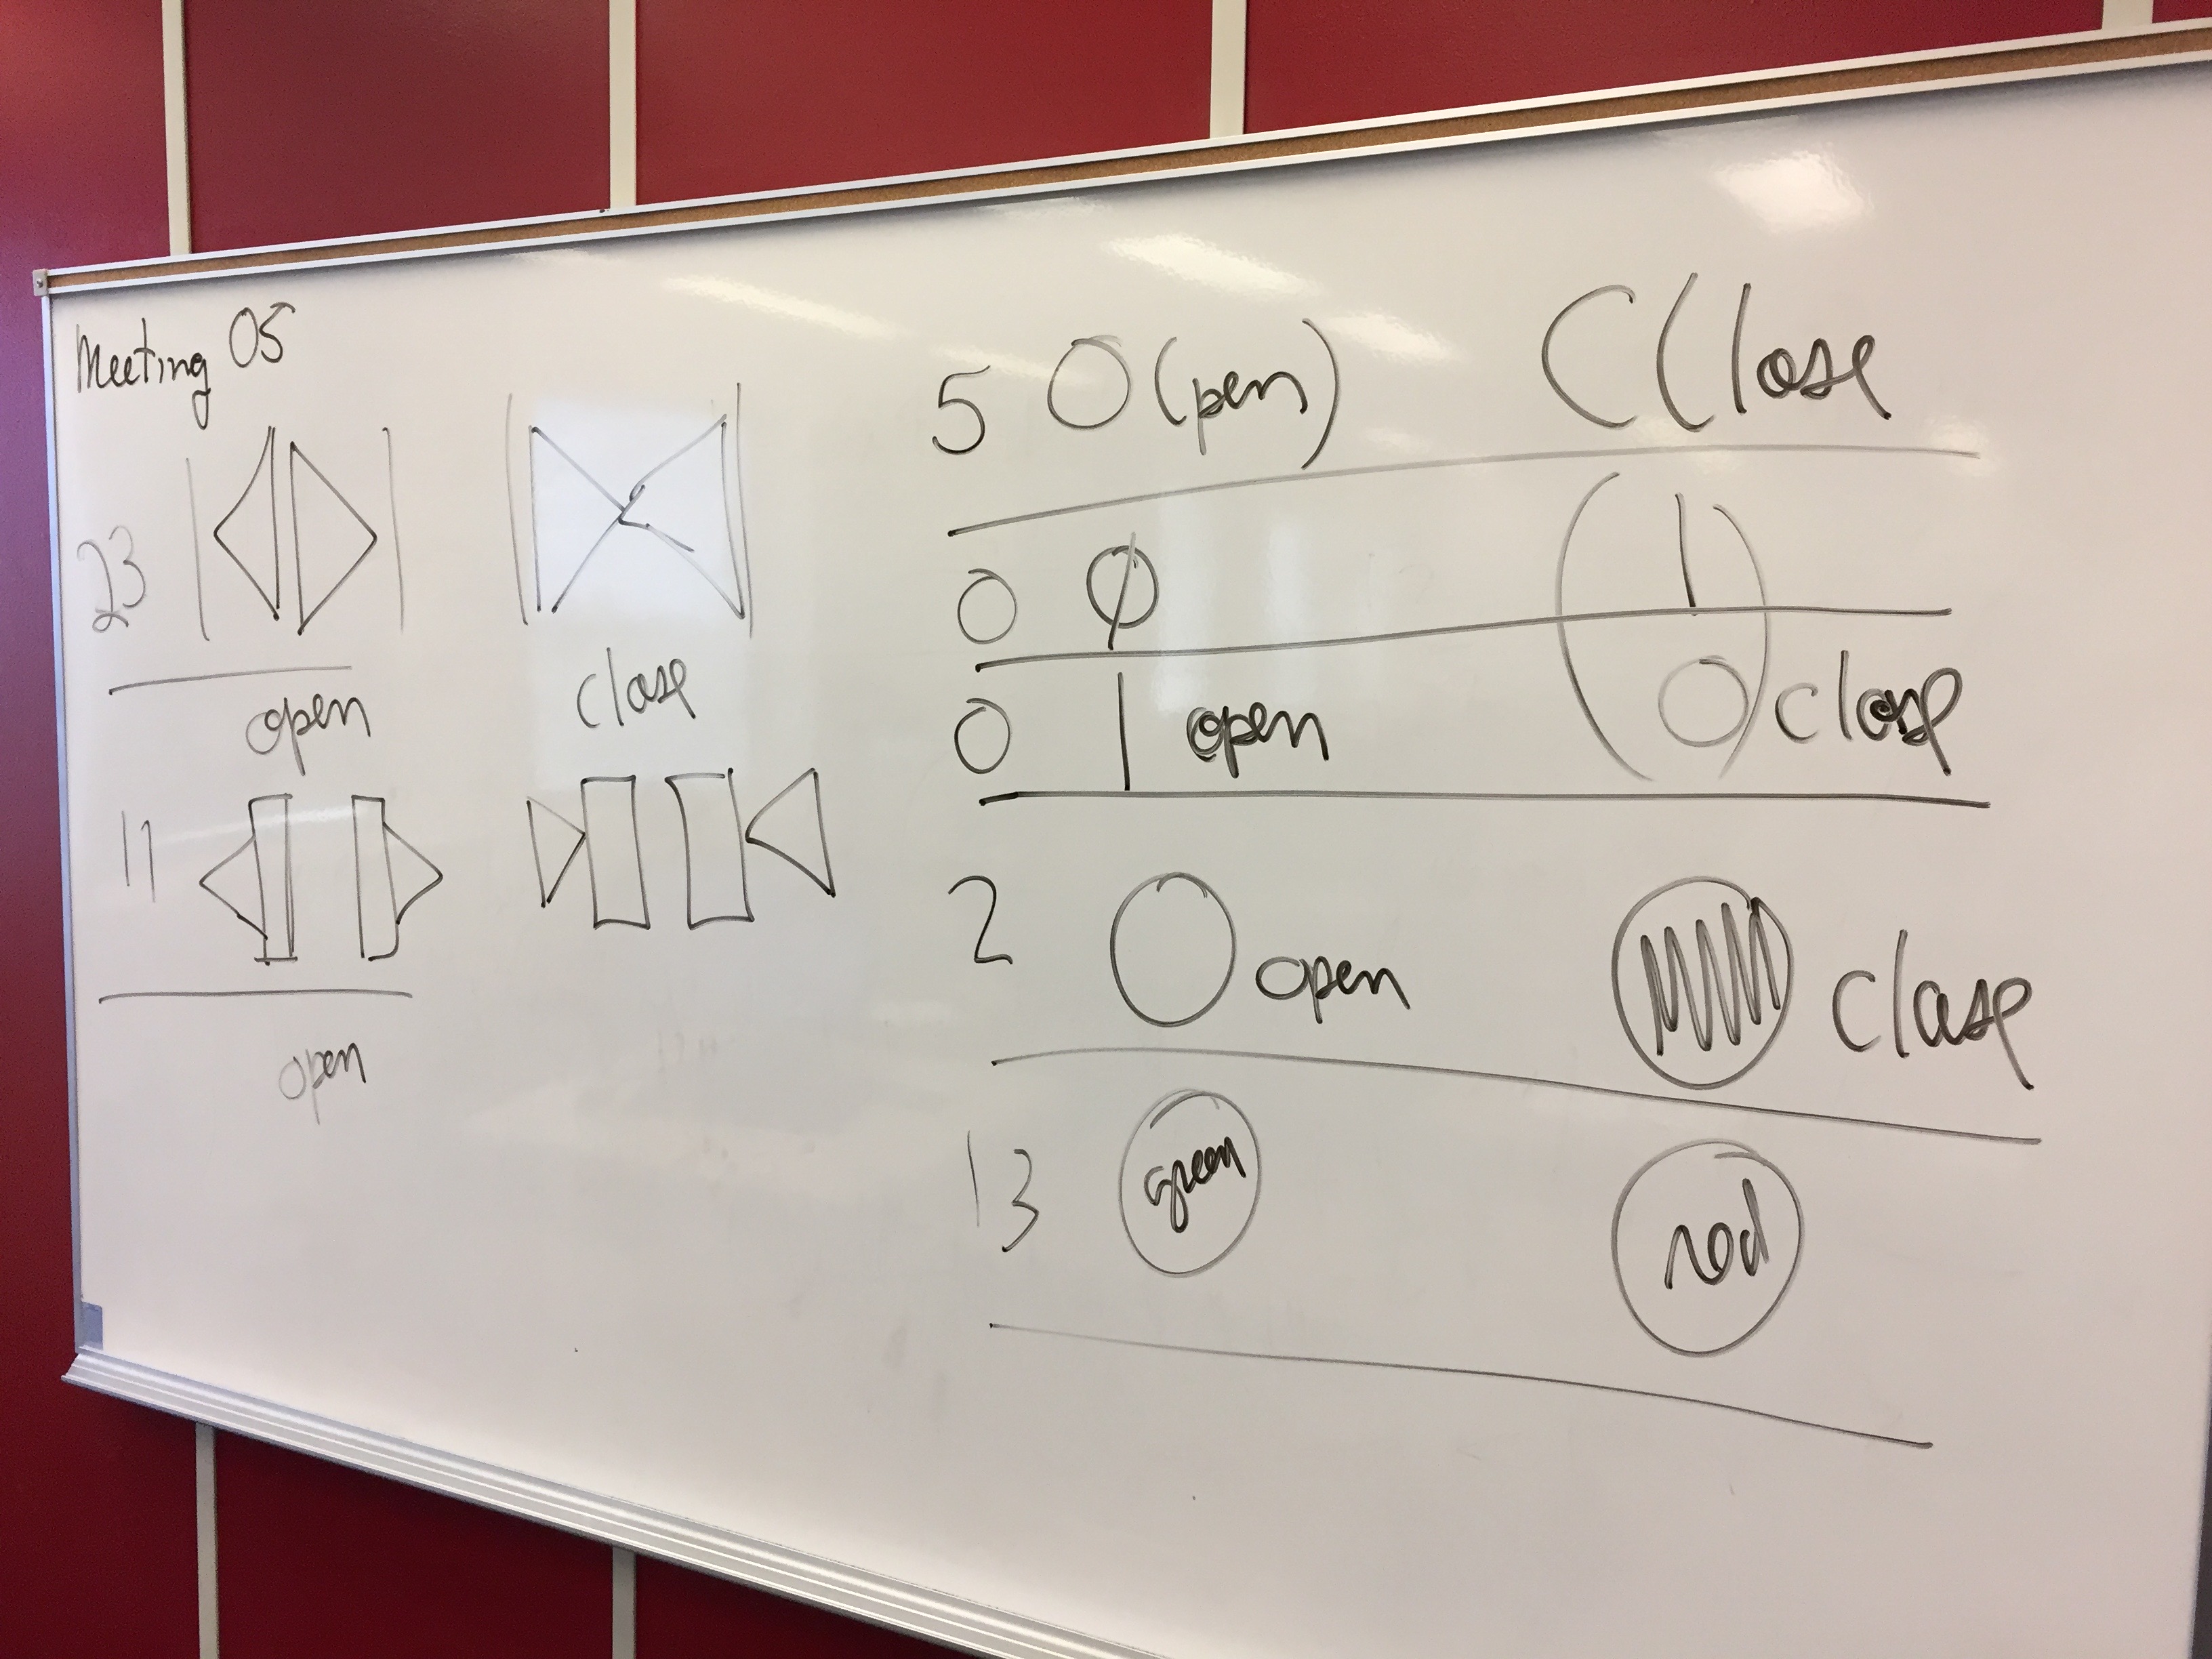 Meeting 05
23
open
close
11
open
5 O(pen) C(lose
0 Ø 1
0 1 open 0 close
2 open close
13 green red